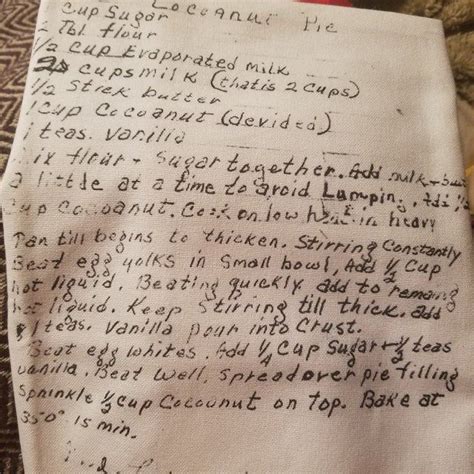 Cocoanut Pie
Cup Sugar
Tbl. flour
1/2 Cup Evaporated milk
cups milk (that is 2 cups)
1/2 Stick butter
1 Cup Cocoanut (devided)
1 teas. Vanilla
mix flour + Sugar together. Add milk +
a little at a time to avoid Lumping. Add 1/2
cup Cocoanut. Cook on low heat in heavy
Pan till begins to thicken. Stirring Constantly
Beat egg yolks in small bowl, Add 1/2 Cup
hot liquid. Beating quickly add to remang
hot liquid. Keep Stirring till thick. add
1 teas. Vanilla pour into Crust.
Beat egg whites. Add 1/4 Cup Sugar + 1/2 teas
vanilla. Beat well, spread over pie filling
Sprinkle 1/2 cup Cocoanut on top. Bake at
350° 15 min.